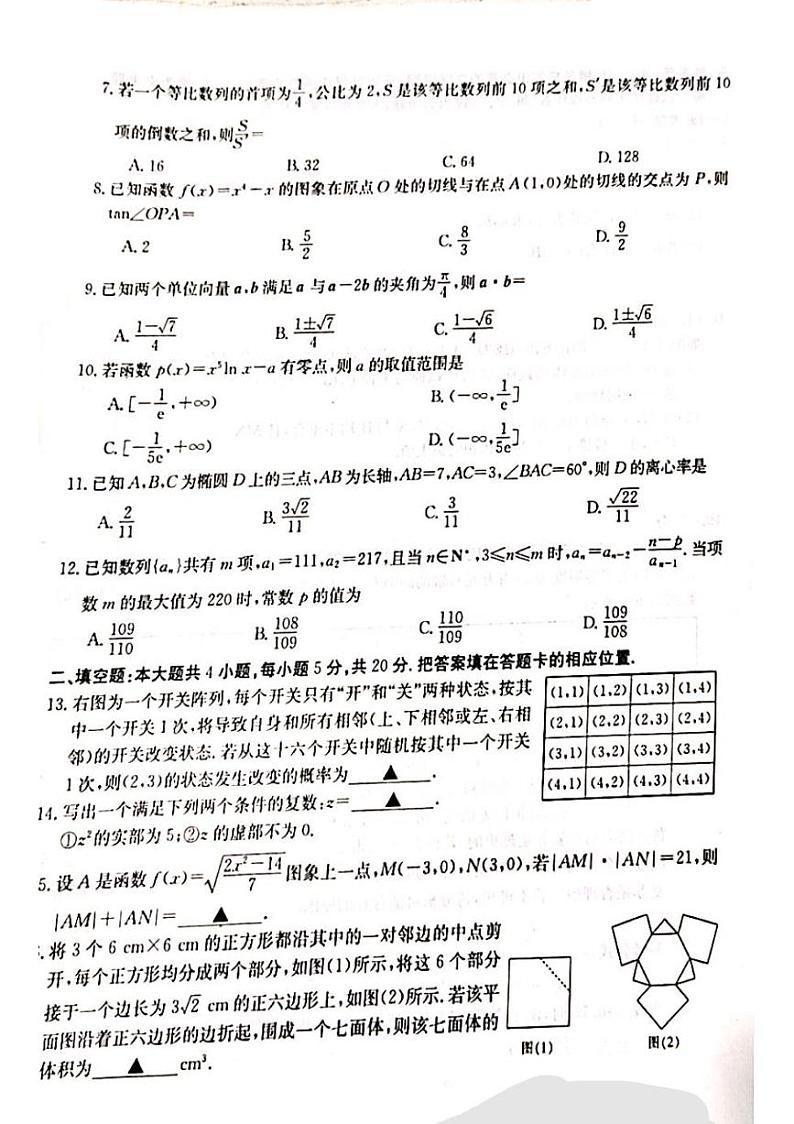 7. 若一个等比数列的首项为1/4,公比为 2,S 是该等比数列前 10 项之和,S′是该等比数列前 10
项的倒数之和,则S/S′=
A. 16 B. 32 C. 64 D. 128
8. 已知函数 f(x)=x⁴-x 的图象在原点 O 处的切线与在点 A(1,0)处的切线的交点为 P,则
tan∠OPA=
A. 2 B. 5/2 C. 8/3 D. 9/2
9. 已知两个单位向量 a,b 满足 a 与 a-2b 的夹角为π/4,则 a·b=
A. (1-√7)/4 B. (1±√7)/4 C. (1-√6)/4 D. (1±√6)/4
10. 若函数 p(x)=x⁵ln x-a 有零点,则 a 的取值范围是
A. [-1/e,+∞) B. (-∞,1/e]
C. [-1/5e,+∞) D. (-∞,1/5e]
11. 已知 A,B,C 为椭圆 D 上的三点,AB 为长轴,AB=7,AC=3,∠BAC=60°,则 D 的离心率是
A. 2/11 B. 3√2/11 C. 3/11 D. √22/11
12. 已知数列{aₙ}共有 m 项,a₁=111,a₂=217,且当 n∈N*,3≤n≤m 时,aₙ=aₙ₋₂-(n-p)/aₙ₋₁. 当项
数 m 的最大值为 220 时,常数 p 的值为
A. 109/110 B. 108/109 C. 110/109 D. 109/108
二、填空题:本大题共 4 小题,每小题 5 分,共 20 分. 把答案填在答题卡的相应位置.
13. 右图为一个开关阵列,每个开关只有“开”和“关”两种状态,按其
中一个开关 1 次,将导致自身和所有相邻(上、下相邻或左、右相
邻)的开关改变状态. 若从这十六个开关中随机按其中一个开关
1 次,则(2,3)的状态发生改变的概率为 ▲ .
(1,1) (1,2) (1,3) (1,4)
(2,1) (2,2) (2,3) (2,4)
(3,1) (3,2) (3,3) (3,4)
(4,1) (4,2) (4,3) (4,4)
14. 写出一个满足下列两个条件的复数:z= ▲ .
①z²的实部为 5;②z 的虚部不为 0.
5. 设 A 是函数 f(x)=√((2x²-14)/7) 图象上一点,M(-3,0),N(3,0),若|AM|·|AN|=21,则
|AM|+|AN|= ▲ .
. 将 3 个 6 cm×6 cm 的正方形都沿其中的一对邻边的中点剪
开,每个正方形均分成两个部分,如图(1)所示,将这 6 个部分
接于一个边长为 3√2 cm 的正六边形上,如图(2)所示. 若该平
面图沿着正六边形的边折起,围成一个七面体,则该七面体的
体积为 ▲ cm³.
图(1) 图(2)